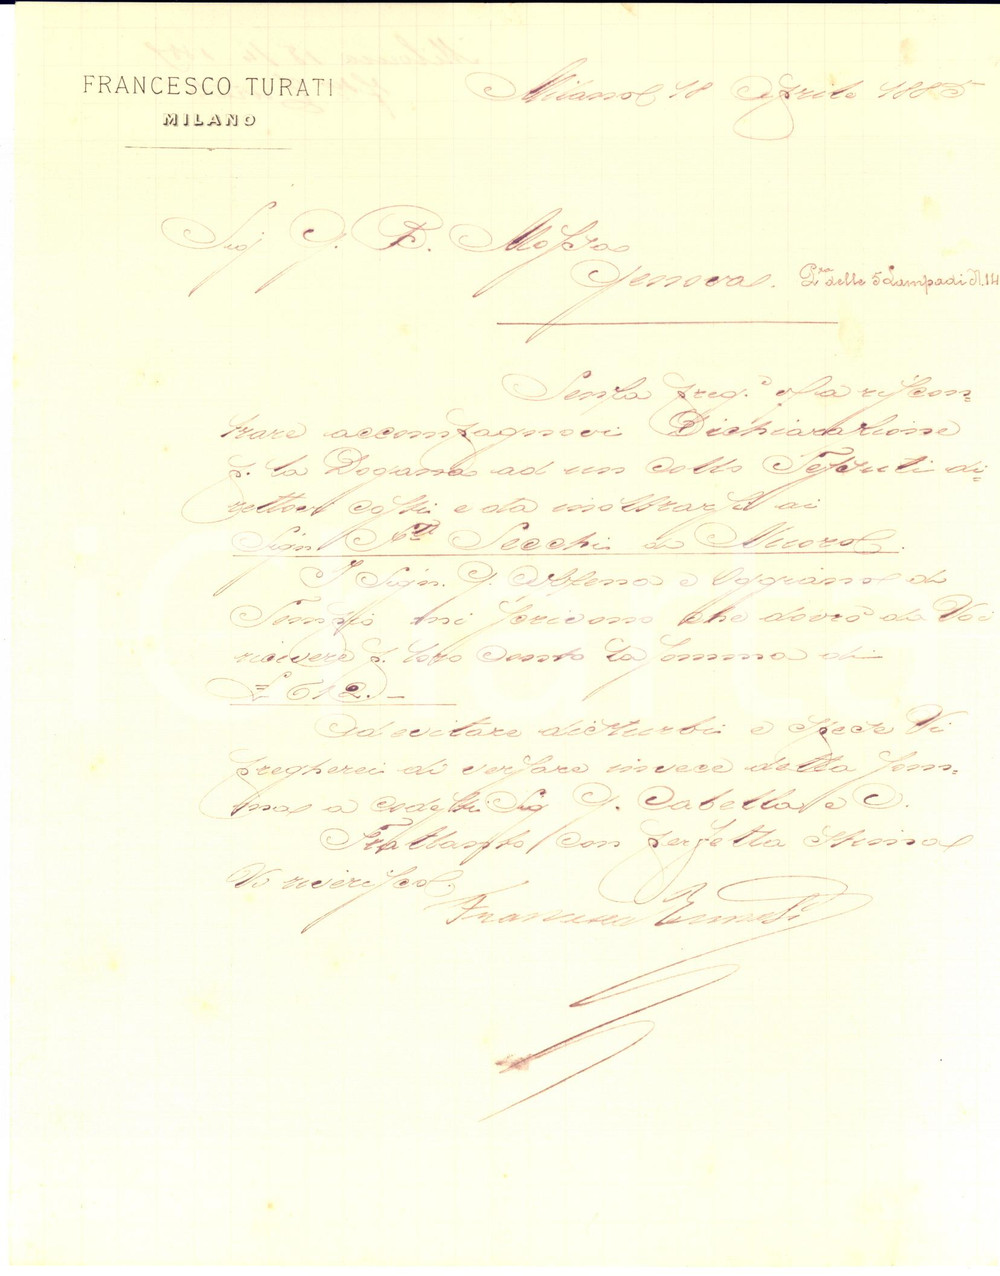 FRANCESCO TURATI
MILANO
Milano 18 Aprile 1885
Sig G. B. Mossa
Genova. Pza delle 5 Lampadi N. 14
Senza preg.e v/ a riscon=
trare accompagnovi Dichiarazione
p. la Dogana ad un collo Tessuti di=
retto costì e da inoltrarsi ai
Sign. Secchi di Nuoro.
I Sign. G. Altena e Oggiano di
Tempio mi scrivono che dovrò da Voi
ricevere p. loro conto la somma di
£ 612.—
Ad evitare disturbi e spese Vi
pregherei di versare invece detta som=
ma a codesti Sig G. Sabella e C.
Frattanto con perfetta stima
Vi riverisco.
Francesco Turati